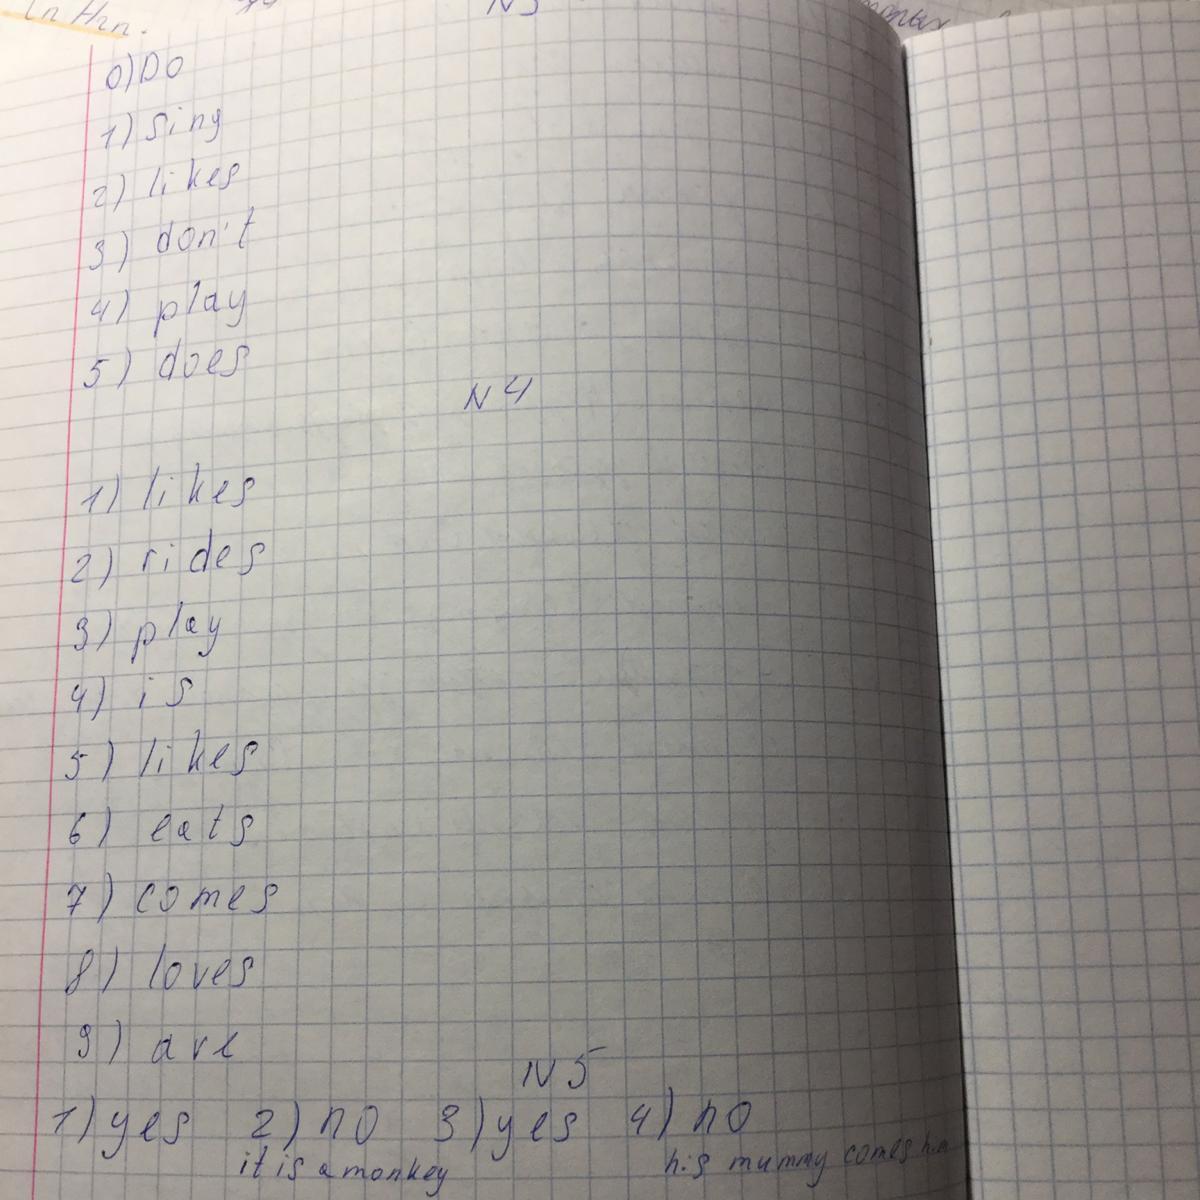 N3
0) Do
1) sing
2) likes
3) don't
4) play
5) does
N 4
1) likes
2) rides
3) play
4) is
5) likes
6) eats
7) comes
8) loves
9) are
N 5
1) yes 2) no 3) yes 4) no
it is a monkey his mummy comes